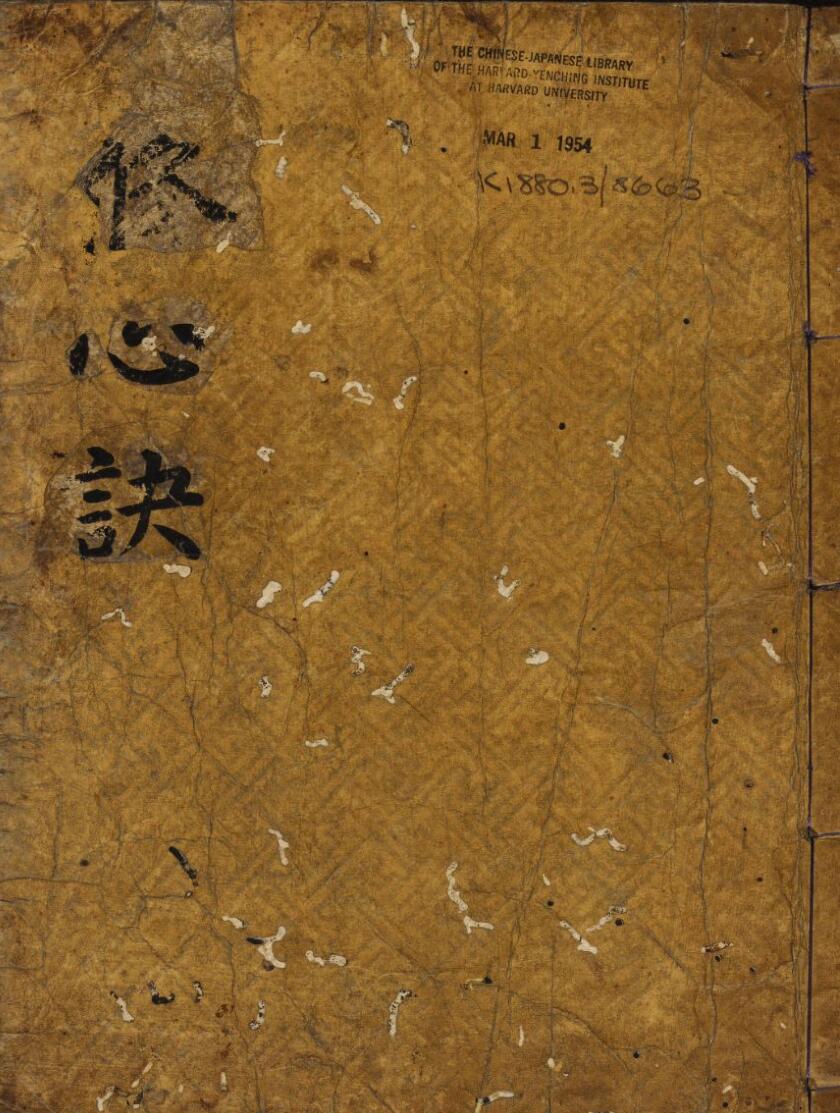 修心訣
THE CHINESE-JAPANESE LIBRARY
OF THE HARVARD-YENCHING INSTITUTE
AT HARVARD UNIVERSITY
MAR 1 1954
K1880.3/8663